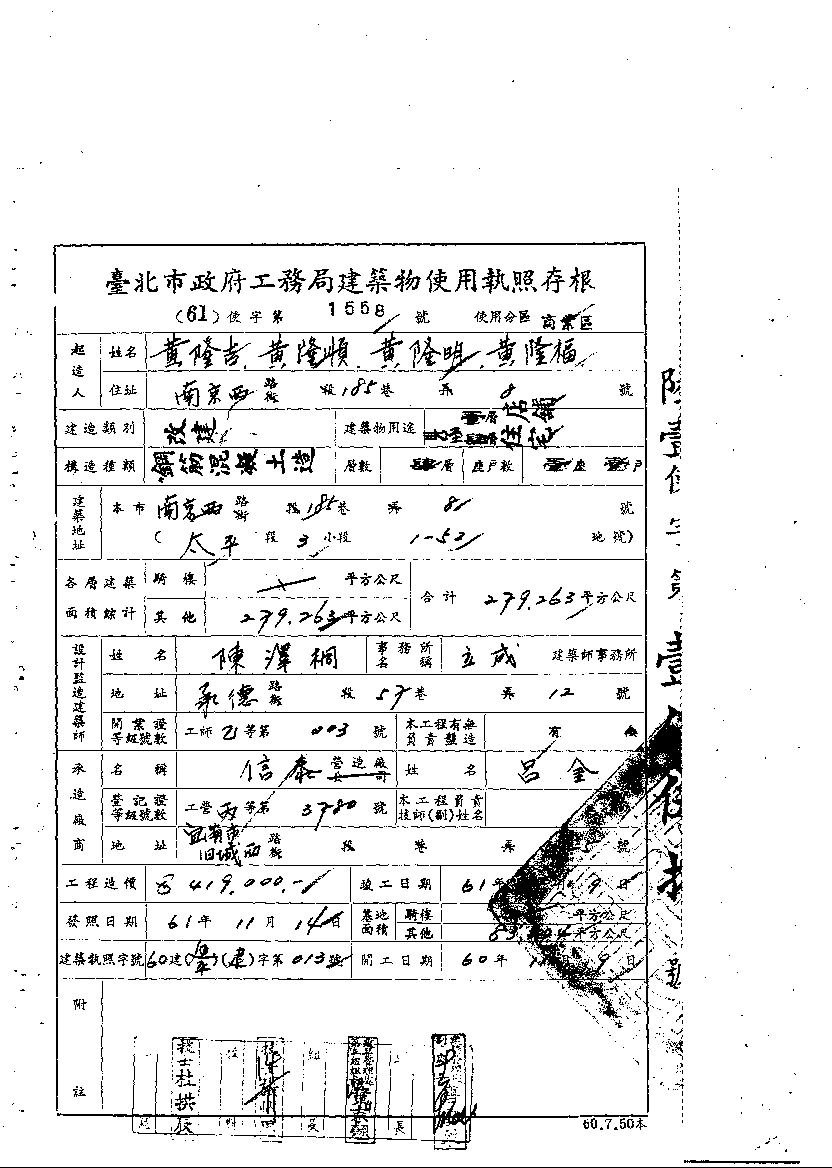 臺北市政府工務局建築物使用執照存根
(61) 使字第 1558 號 使用分區 商業區
起造人 姓名 黃隆吉、黃隆順、黃隆明、黃隆福
住址 南京西路街 段 185 巷 弄 8 號
建造類別 改建 建築物用途 店鋪 住宅
構造種類 鋼筋混凝土造 層數 層 座戶數 座 戶
建築地址 本市 南京西路街 段 185 巷 弄 8 號
(太平段 3 小段 1-53 地號)
各層建築面積餘計 騎樓 平方公尺 合計 279.263 平方公尺
其他 279.263 平方公尺
設計監造建築師 姓名 陳澤桐 事務所名稱 立成 建築師事務所
地址 承德路街 段 57 巷 弄 12 號
開業證等級號數 工師乙等第 003 號 本工程有無負責監造 有
承造廠商 名稱 信泰 營造廠 姓名 呂金
登記證等級號數 工營丙等第 3780 號 本工程負責技師(副)姓名
地址 宜蘭市旧城西路街 段 巷 弄 號
工程造價 419,000.- 竣工日期 61 年 9 日
發照日期 61 年 11 月 14 日 基地面積 騎樓 平方公尺
其他 平方公尺
建築執照字號 60 建( )( )字第 013 號 開工日期 60 年 9 日
附註
技士杜拱辰
組長
60.7.50本